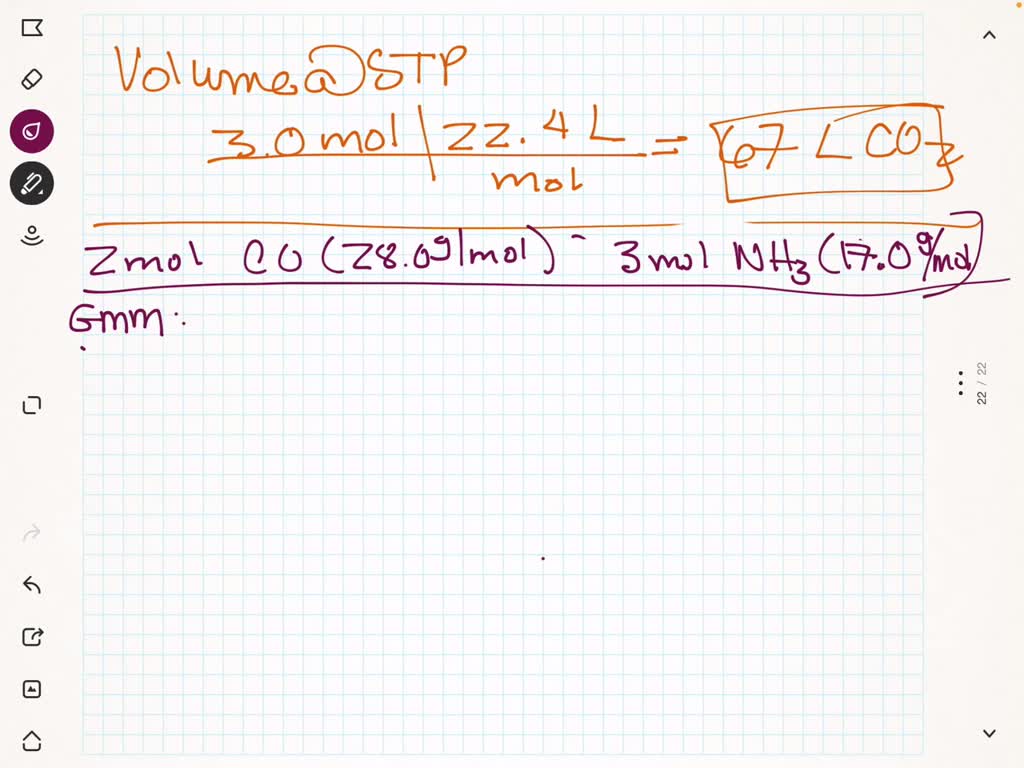 Volume@STP
3.0 mol | 22.4 L = 67 L CO2
mol
2mol CO (28.0g/mol) - 3mol NH3 (17.0g/mol)
Gmm:
22 / 22